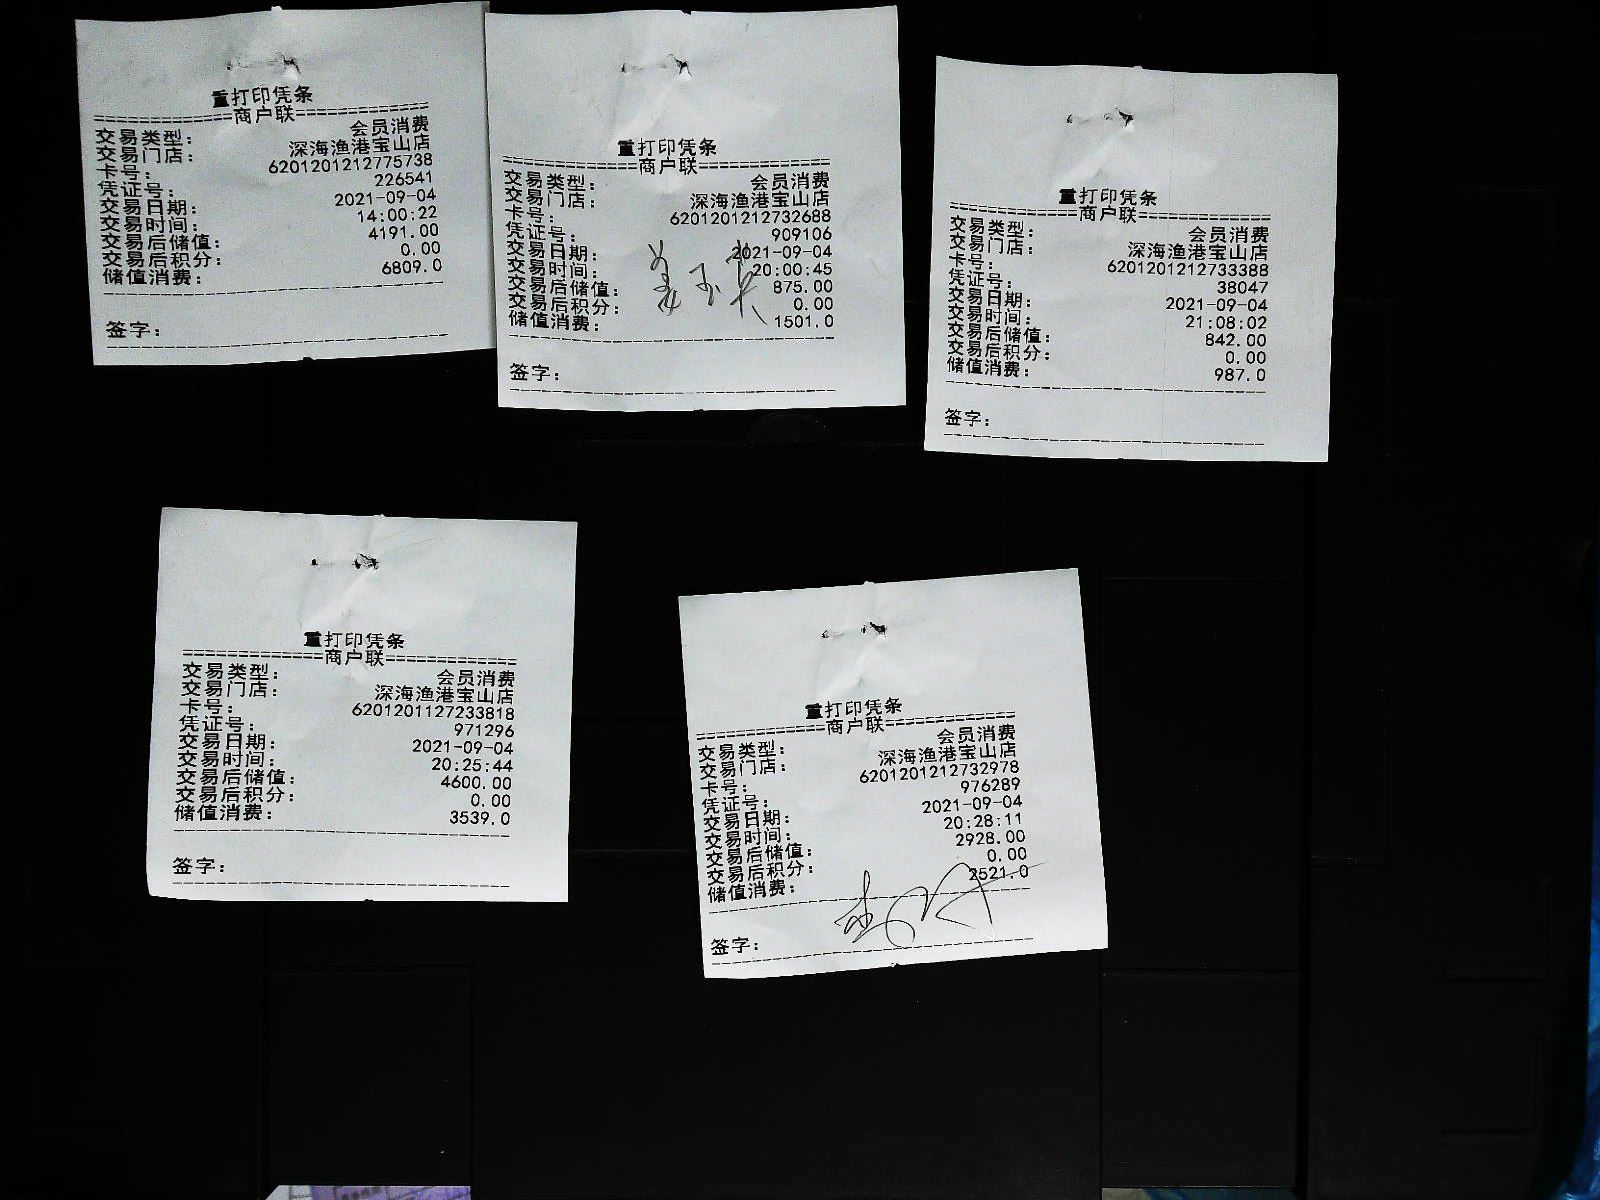 重打印凭条
==============商户联==============
交易类型: 会员消费
交易门店: 深海渔港宝山店
卡号: 6201201212775738
凭证号: 226541
交易日期: 2021-09-04
交易时间: 14:00:22
交易后储值: 4191.00
交易后积分: 0.00
储值消费: 6809.0
签字:
重打印凭条
==============商户联==============
交易类型: 会员消费
交易门店: 深海渔港宝山店
卡号: 6201201212732688
凭证号: 909106
交易日期: 2021-09-04
交易时间: 20:00:45
交易后储值: 875.00
交易后积分: 0.00
储值消费: 1501.0
签字:
重打印凭条
==============商户联==============
交易类型: 会员消费
交易门店: 深海渔港宝山店
卡号: 6201201212733388
凭证号: 38047
交易日期: 2021-09-04
交易时间: 21:08:02
交易后储值: 842.00
交易后积分: 0.00
储值消费: 987.0
签字:
重打印凭条
==============商户联==============
交易类型: 会员消费
交易门店: 深海渔港宝山店
卡号: 6201201127233818
凭证号: 971296
交易日期: 2021-09-04
交易时间: 20:25:44
交易后储值: 4600.00
交易后积分: 0.00
储值消费: 3539.0
签字:
重打印凭条
==============商户联==============
交易类型: 会员消费
交易门店: 深海渔港宝山店
卡号: 6201201212732978
凭证号: 976289
交易日期: 2021-09-04
交易时间: 20:28:11
交易后储值: 2928.00
交易后积分: 0.00
储值消费: 2521.0
签字: